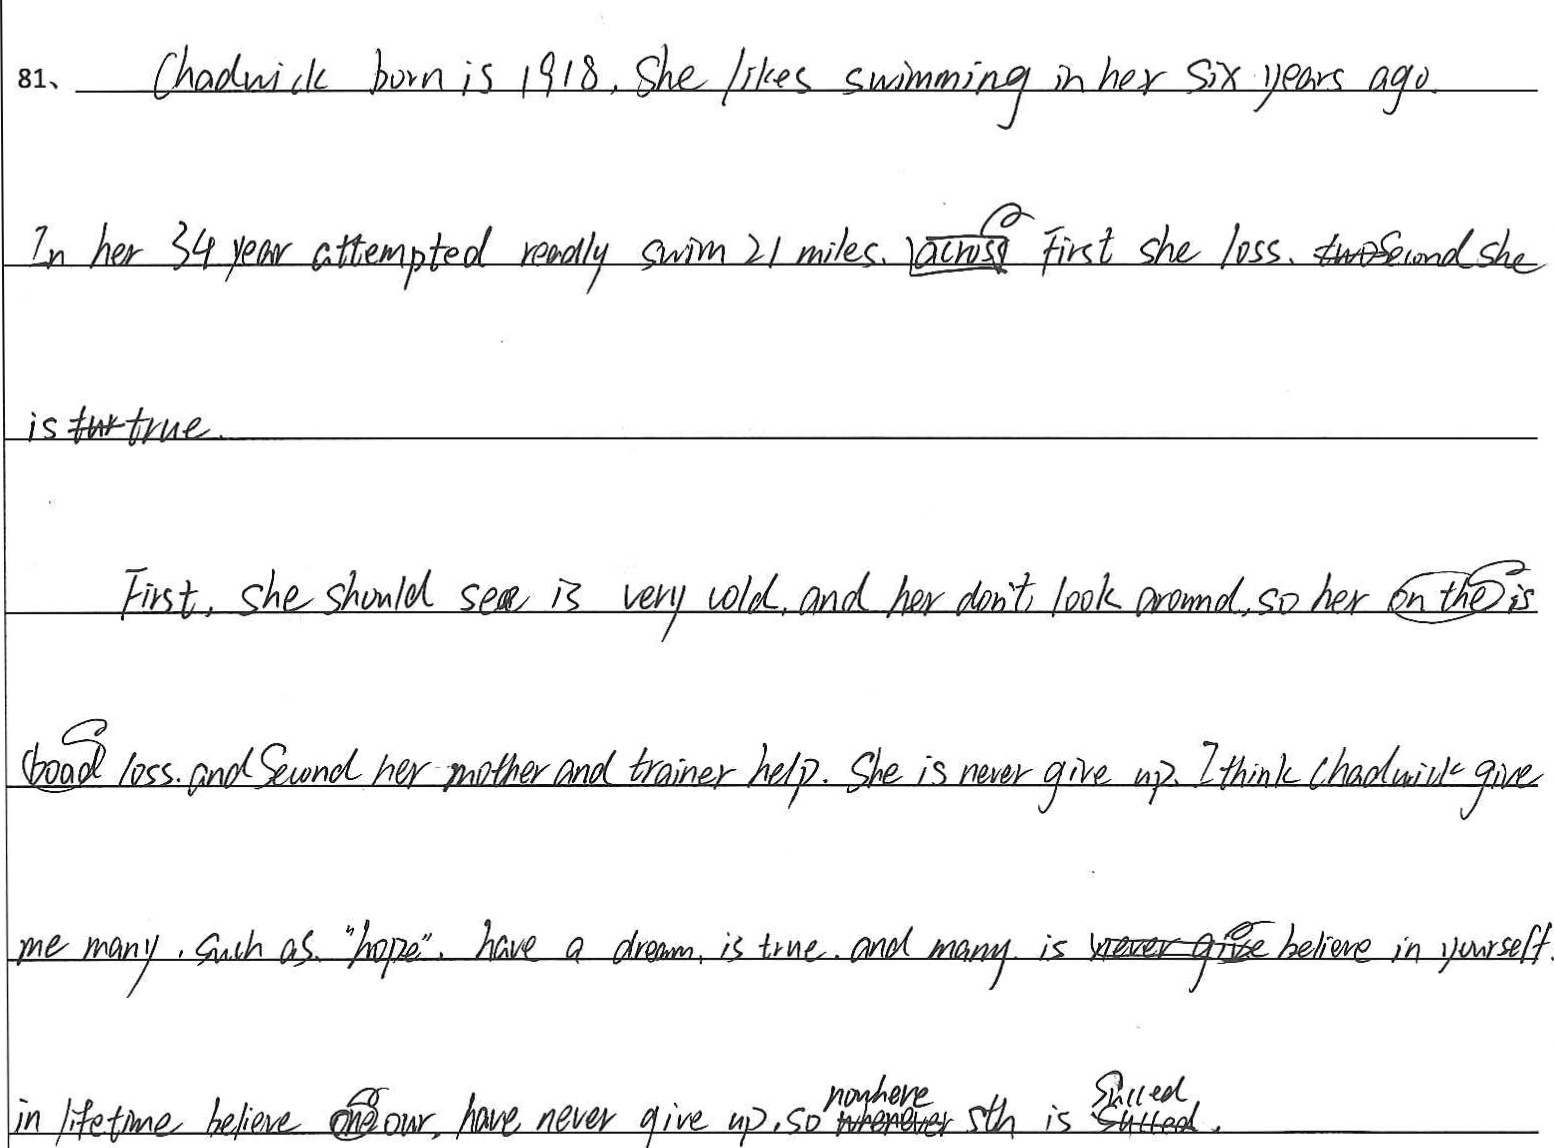 81、 Chadwick born is 1918, She likes swimming in her six years ago.
In her 34 year attempted readly swim 21 miles. First she loss. Second she
is true.
First, she should sea is very cold, and her don't look around, so her is
loss. and Second her mother and trainer help. She is never give up. I think Chadwick give
me many, such as "hope". have a dream, is true. and many is believe in yourself.
in lifetime believe our, have never give up, so nowhere sth is